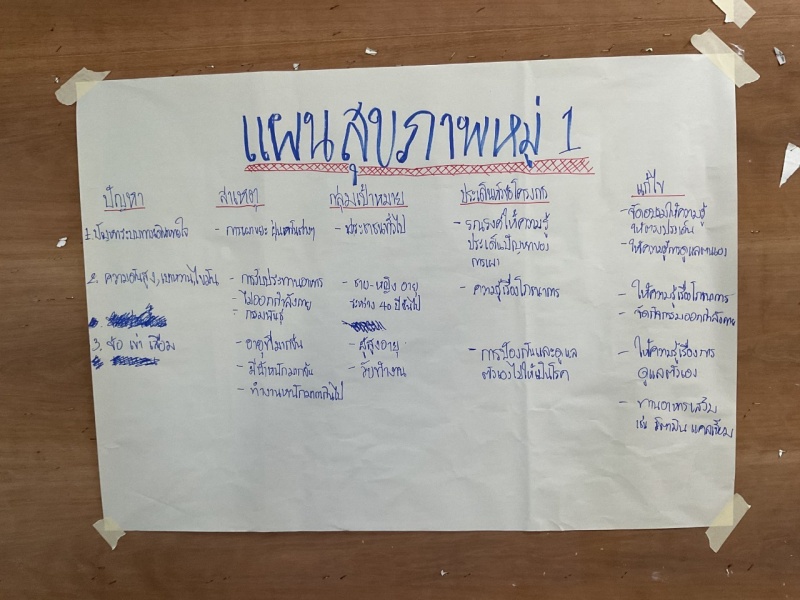 แผนสุขภาพหมู่ 1
ปัญหา
1. ปัญหาระบบทางเดินหายใจ
2. ความดันสูง, เบาหวาน ไขมัน
3. ข้อ เข่า เสื่อม
สาเหตุ
- การเผาขยะ ฝุ่นควันต่างๆ
- การรับประทานอาหาร
- ไม่ออกกำลังกาย
- กรรมพันธุ์
- อายุที่มากขึ้น
- มีน้ำหนักมากขึ้น
- ทำงานหนักมากเกินไป
กลุ่มเป้าหมาย
- ประชาชนทั่วไป
- ชาย-หญิง อายุ
ระหว่าง 40 ปีขึ้นไป
- ผู้สูงอายุ
- วัยทำงาน
ประเด็นหัวข้อโครงการ
- รณรงค์ให้ความรู้
ประเด็นปัญหาของ
การเผา
- ความรู้เรื่องโภชนาการ
- การป้องกันและดูแล
ตัวเองไม่ให้เป็นโรค
แก้ไข
- จัดอบรมให้ความรู้
ให้ตรงประเด็น
- ให้ความรู้การดูแลตนเอง
- ให้ความรู้เรื่องโภชนาการ
- จัดกิจกรรมออกกำลังกาย
- ให้ความรู้เรื่องการ
ดูแลตัวเอง
- ทานอาหารเสริม
เช่น วิตามิน แคลเซียม